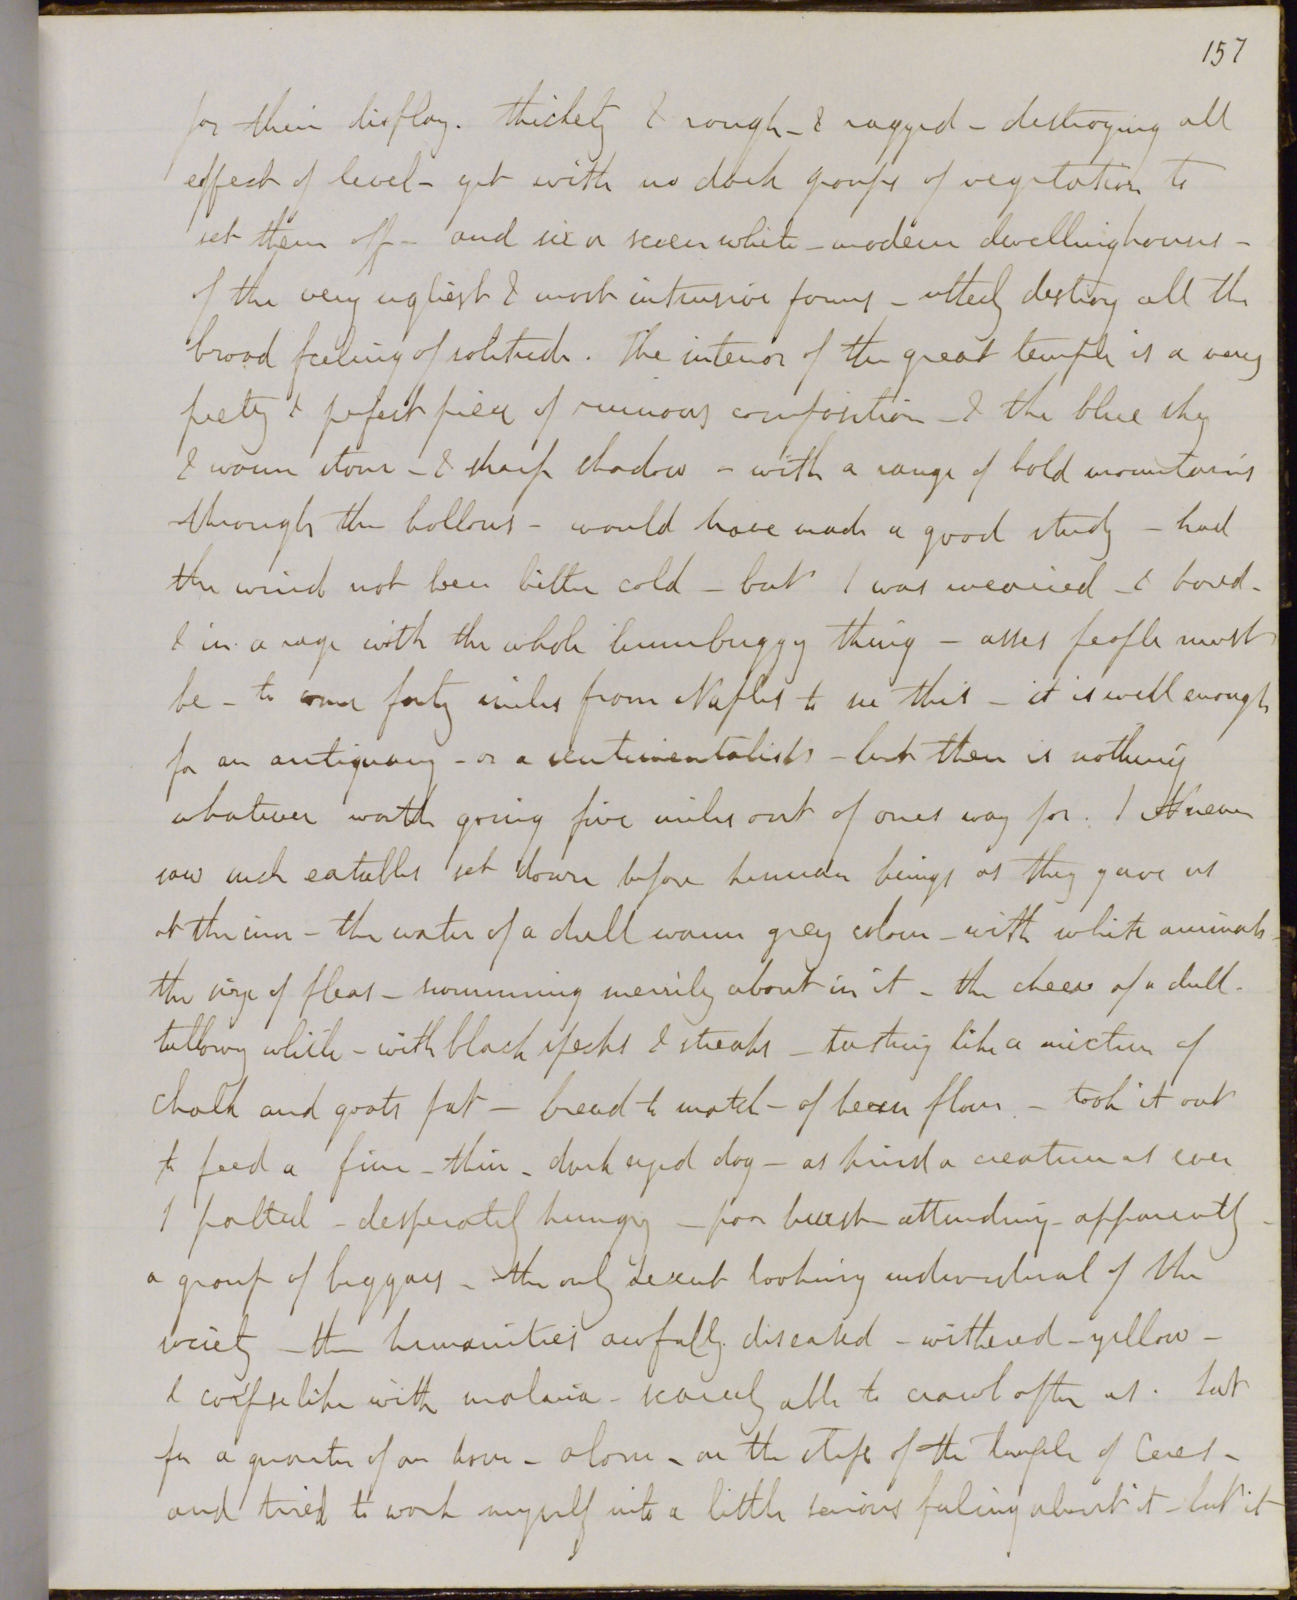 157
for their display. thickety & rough - & ragged - destroying all
effect of level - yet with no dark groups of vegetation to
set them off - and six or seven white - modern dwellinghouses -
of the very ugliest & most intrusive forms - utterly destroy all the
broad feeling of solitude. The interior of the great temple is a very
pretty & perfect piece of ruinous composition - & the blue sky
& warm stone - & sharp shadow - with a range of bold mountains
through the hollows - would have made a good study - had
the wind not been bitter cold - but I was wearied - & bored -
& in a rage with the whole humbuggy thing - asses people must
be - to come forty miles from Naples to see this - it is well enough
for an antiquary - or a sentimentalist - but there is nothing
whatever worth going five miles out of ones way for. I never
saw such eatables set down before human beings as they gave us
at the inn - the water of a dull warm grey colour - with white animals -
the size of fleas - swimming merrily about in it - the cheese of a dull -
tallowy white - with black specks & streaks - tasting like a mixture of
chalk and goats fat - bread to match - of bean flour - took it out
to feed a fine - thin - dark eyed dog - as kind a creature as ever
I patted - desperately hungry - poor beast - attending - apparently -
a group of beggars - the only decent looking individual of the
society - the humanities awfully diseased - withered - yellow -
& corpselike with malaria - scarcely able to crawl after us. Sat
for a quarter of an hour - alone - on the steps of the temple of Ceres -
and tried to work myself into a little serious feeling about it - but it